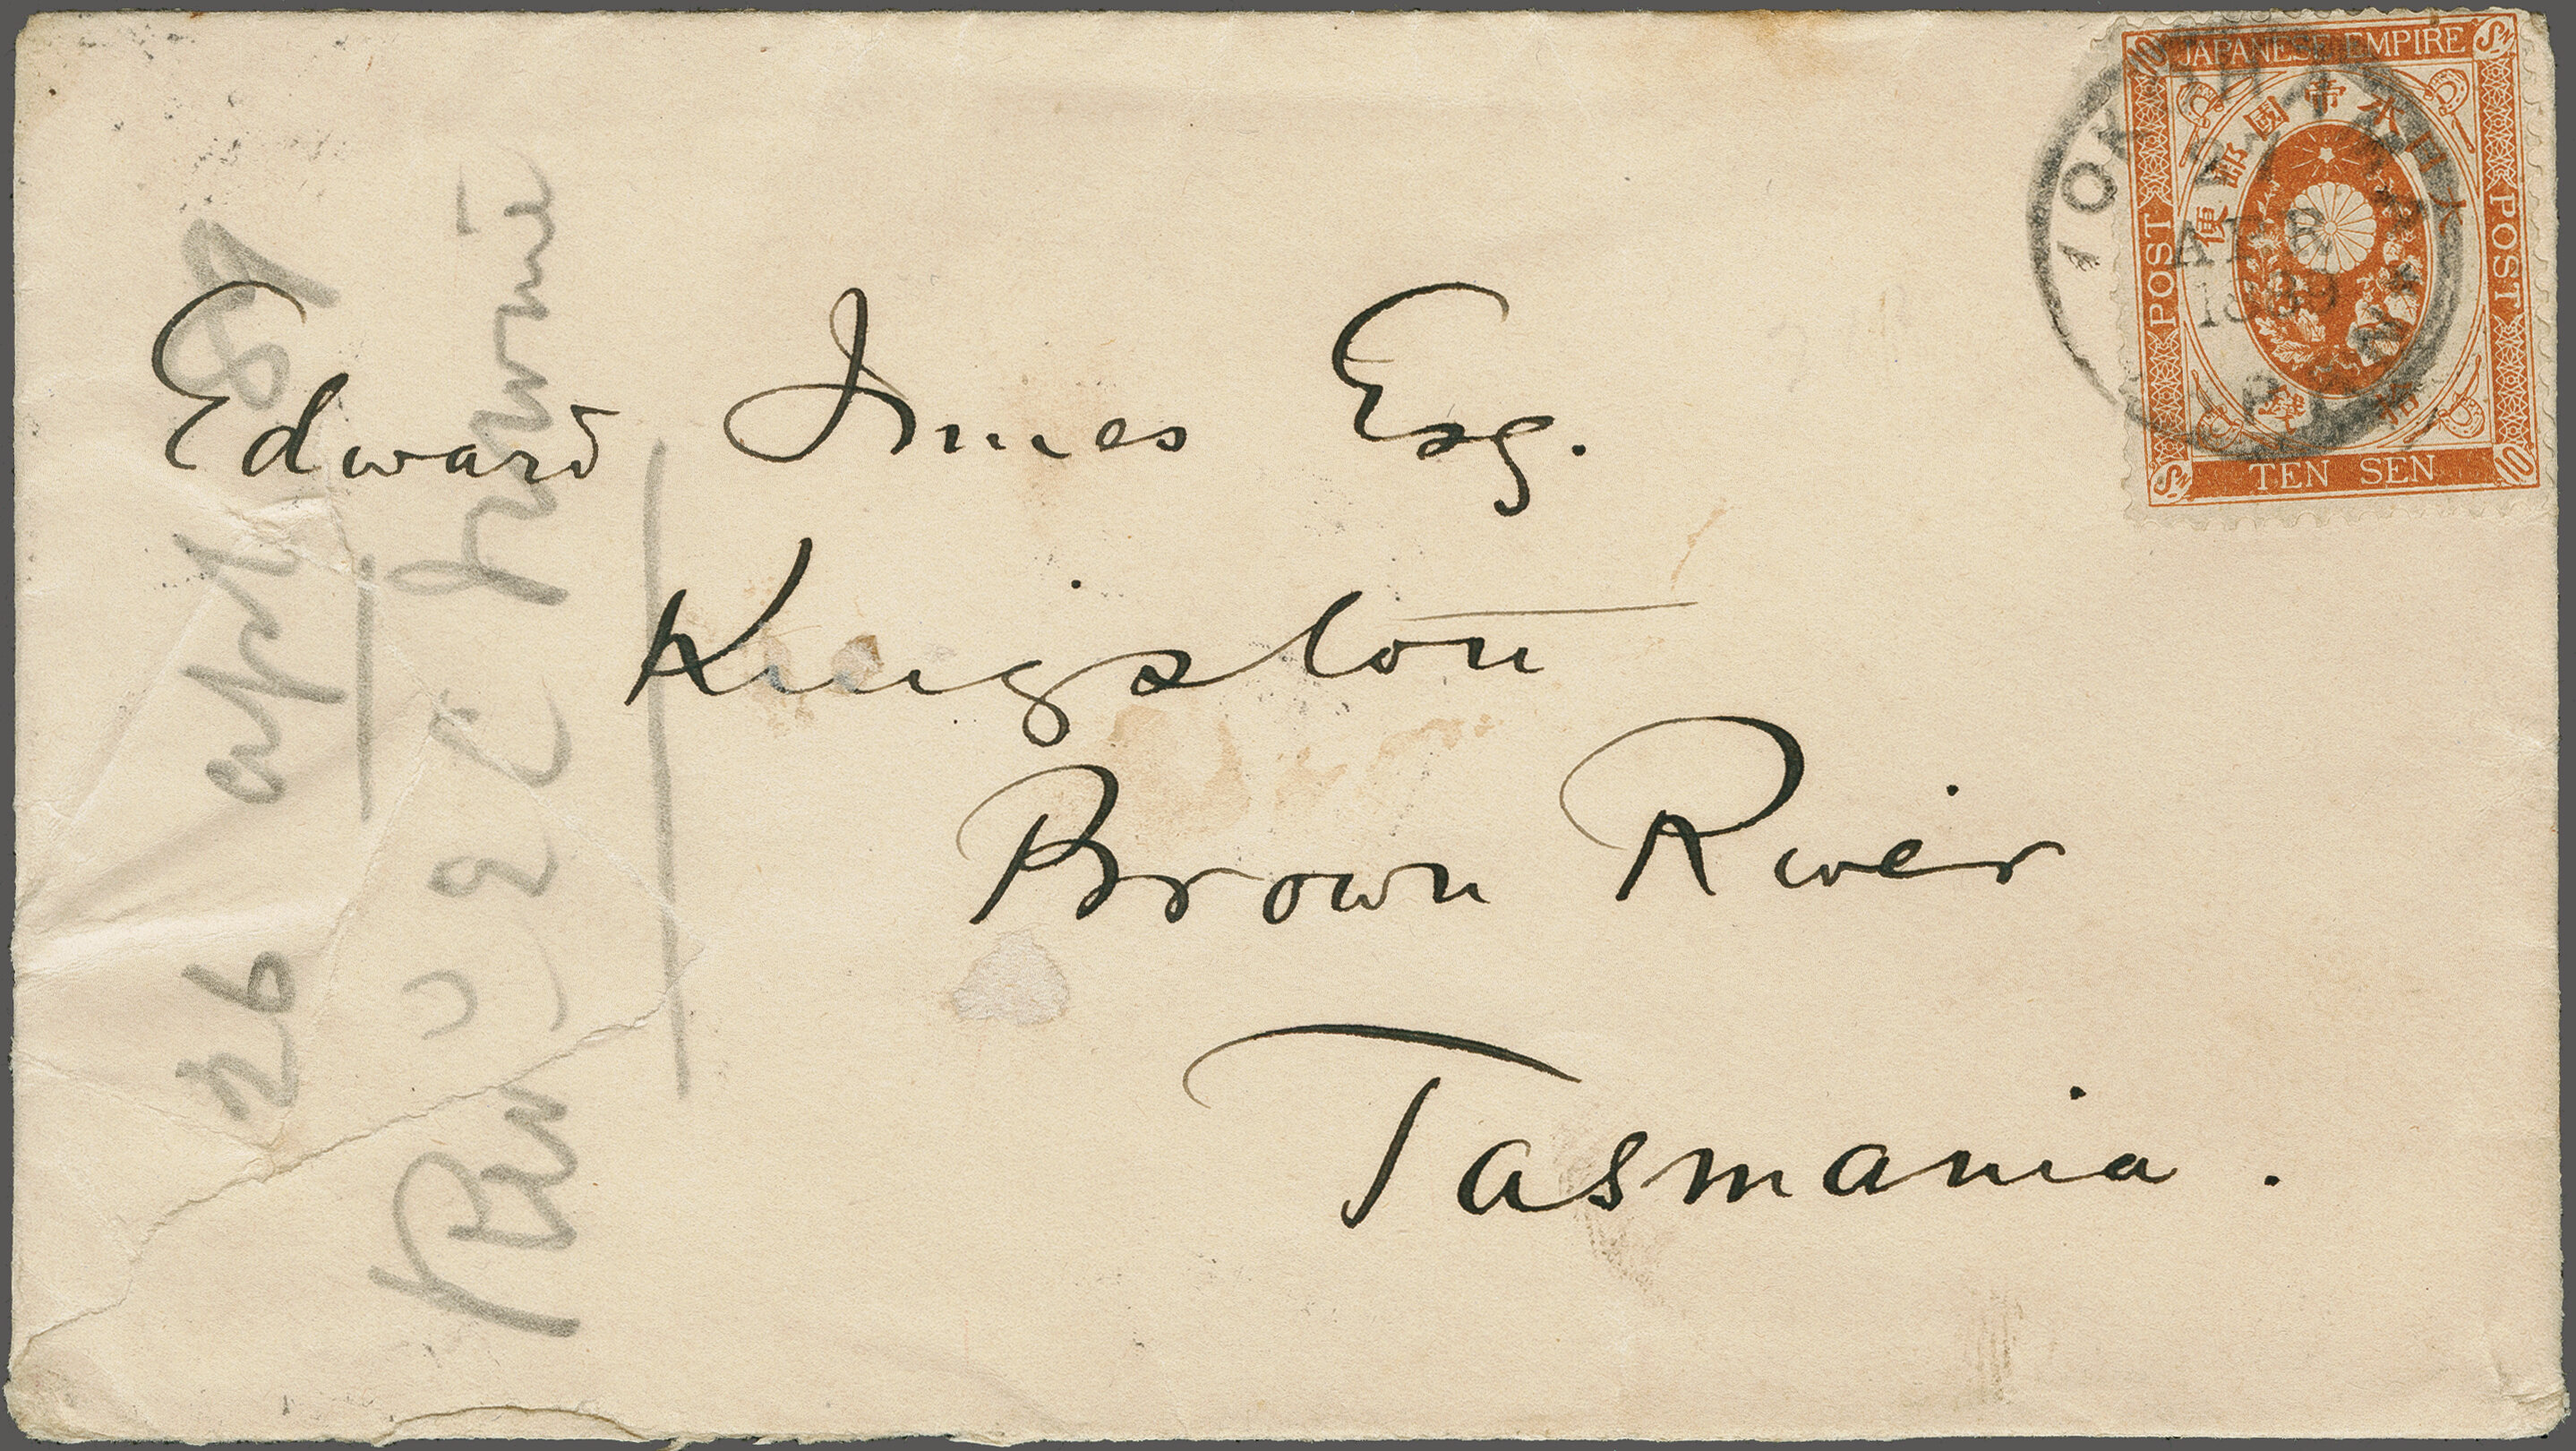 JAPANESE EMPIRE
大日本帝國郵便
POST
POST
TEN SEN
10
1889
JAPAN
Edward Innes Esq.
Kingston
Brown River
Tasmania.
26 apl 89